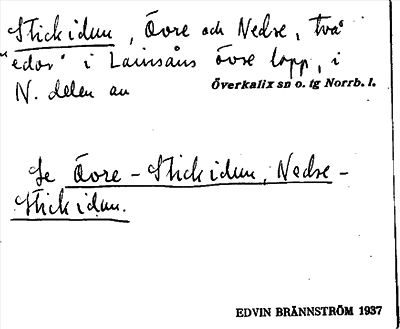 Stickidun, Övre och Nedre, två
"edor" i Lainsåns övre lopp, i
N. delen av Överkalix sn o. tg Norrb. l.
Se Övre-Stickidun, Nedre-
Stickidun.
EDVIN BRÄNNSTRÖM 1937